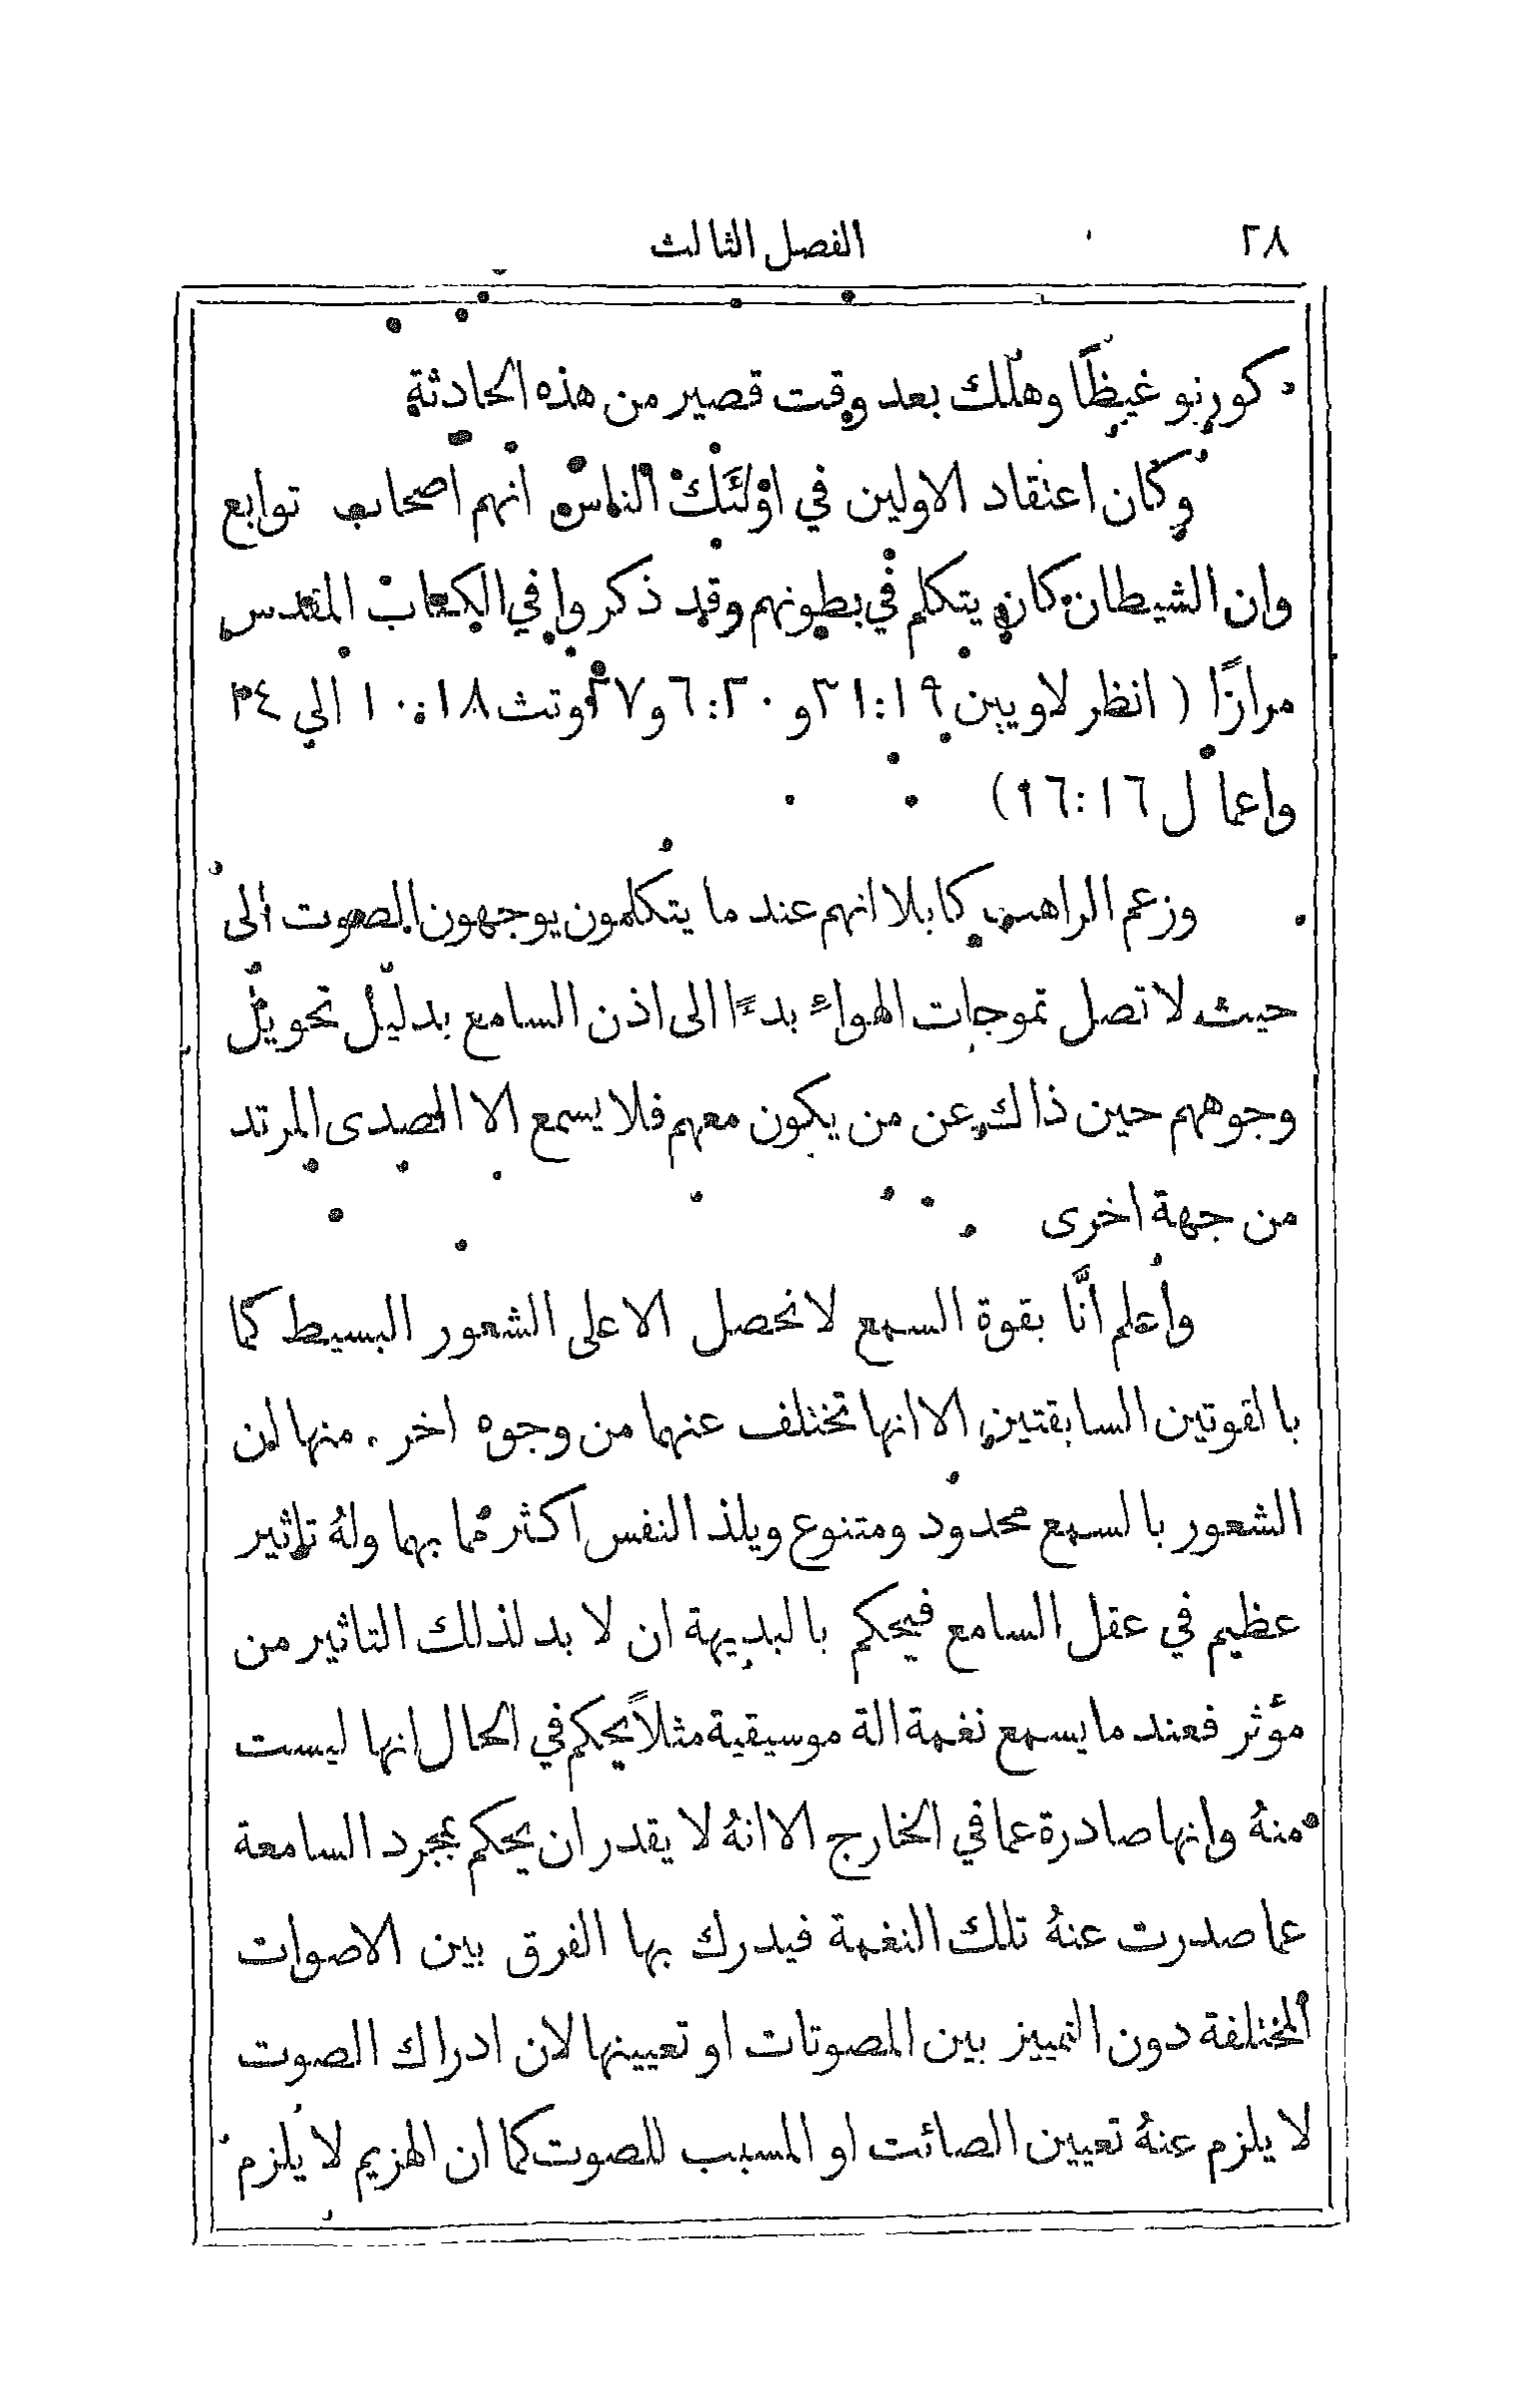 ٢٨ الفصل الثالث
كورنو غيظًا وهلك بعد وقت قصير من هذه الحادثة
وكان اعتقاد الاولين في اولئك الناس انهم اصحاب توابع
وان الشيطان كان يتكلم في بطونهم وقد ذكروا في الكتاب المقدس
مرارًا ( انظر لاويين ١٩:‏٣١ و ٢٠:‏٦ و٢٧ وتث ١٨:‏١٠ الى ٣٤
واعمال ١٦:‏١٦)
وزعم الراهب كابلا انهم عند ما يتكلمون يوجهون الصوت الى
حيث لا تصل تموجات الهواء بدءًا الى اذن السامع بدليل تحويل
وجوههم حين ذاك عن من يكون معهم فلا يسمع الا الصدى المرتد
من جهة اخرى
واعلم انَّا بقوة السمع لا نحصل الا على الشعور البسيط كما
بالقوتين السابقتين الا انها تختلف عنهما من وجوه اخر . منها ان
الشعور بالسمع محدود ومتنوع ويلذ النفس اكثر مما بهما ولهُ تاثير
عظيم في عقل السامع فيحكم بالبديهة ان لا بد لذلك التاثير من
مؤثر فعند ما يسمع نغمة الة موسيقية مثلاً يحكم في الحال انها ليست
منهُ وانها صادرة عما في الخارج الا انهُ لا يقدر ان يحكم بمجرد السامعة
عما صدرت عنهُ تلك النغمة فيدرك بها الفرق بين الاصوات
المختلفة دون التمييز بين المصوتات او تعيينها لان ادراك الصوت
لا يلزم عنهُ تعيين الصائت او المسبب للصوت كما ان الهزيم لا يلزم